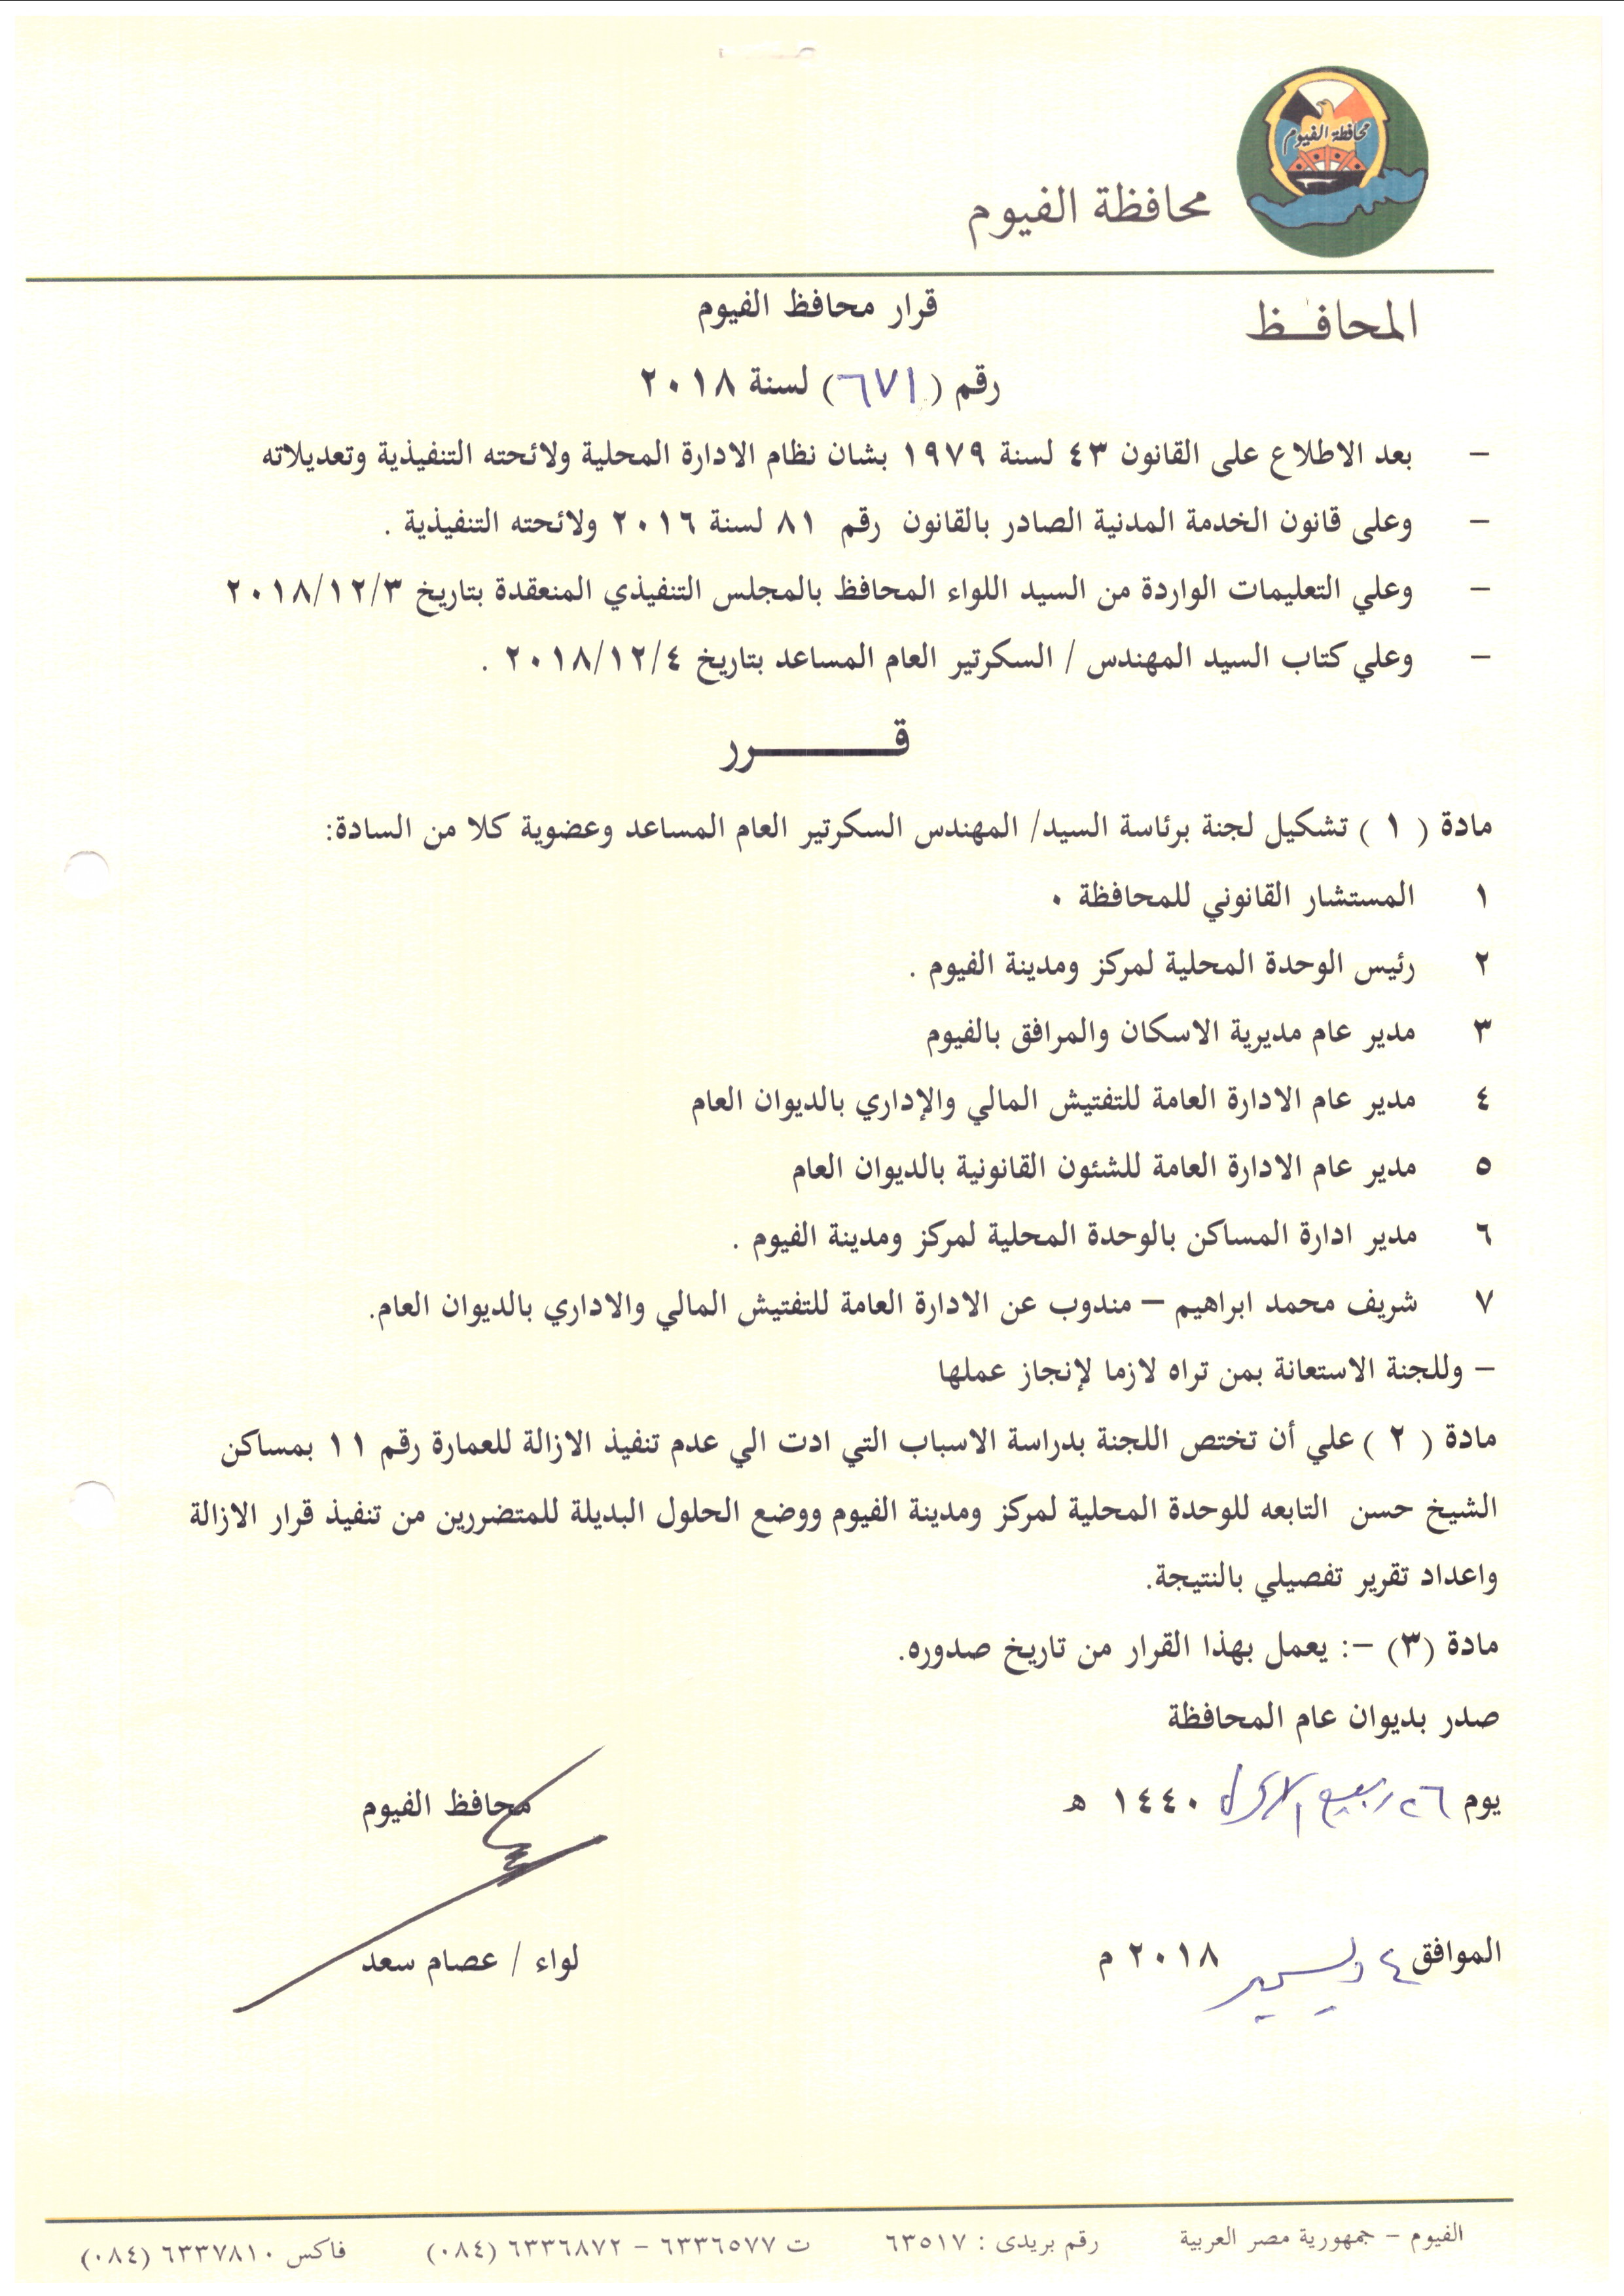 محافظة الفيوم
محافظة الفيوم
المحافـظ
قرار محافظ الفيوم
رقم (٦٧١) لسنة ٢٠١٨
– بعد الاطلاع على القانون ٤٣ لسنة ١٩٧٩ بشان نظام الادارة المحلية ولائحته التنفيذية وتعديلاته
– وعلى قانون الخدمة المدنية الصادر بالقانون رقم ٨١ لسنة ٢٠١٦ ولائحته التنفيذية .
– وعلي التعليمات الواردة من السيد اللواء المحافظ بالمجلس التنفيذي المنعقدة بتاريخ ٢٠١٨/١٢/٣
– وعلي كتاب السيد المهندس / السكرتير العام المساعد بتاريخ ٢٠١٨/١٢/٤ .
قـــــــرر
مادة ( ١ ) تشكيل لجنة برئاسة السيد/ المهندس السكرتير العام المساعد وعضوية كلا من السادة:
١ المستشار القانوني للمحافظة ٠
٢ رئيس الوحدة المحلية لمركز ومدينة الفيوم .
٣ مدير عام مديرية الاسكان والمرافق بالفيوم
٤ مدير عام الادارة العامة للتفتيش المالي والإداري بالديوان العام
٥ مدير عام الادارة العامة للشئون القانونية بالديوان العام
٦ مدير ادارة المساكن بالوحدة المحلية لمركز ومدينة الفيوم .
٧ شريف محمد ابراهيم – مندوب عن الادارة العامة للتفتيش المالي والاداري بالديوان العام.
– وللجنة الاستعانة بمن تراه لازما لإنجاز عملها
مادة ( ٢ ) علي أن تختص اللجنة بدراسة الاسباب التي ادت الي عدم تنفيذ الازالة للعمارة رقم ١١ بمساكن
الشيخ حسن التابعه للوحدة المحلية لمركز ومدينة الفيوم ووضع الحلول البديلة للمتضررين من تنفيذ قرار الازالة
واعداد تقرير تفصيلي بالنتيجة.
مادة (٣) –: يعمل بهذا القرار من تاريخ صدوره.
صدر بديوان عام المحافظة
يوم ٢٦ ربيع الاول ١٤٤٠ هـ
محافظ الفيوم
الموافق ٤ ديسمبر ٢٠١٨ م
لواء / عصام سعد
الفيوم – جمهورية مصر العربية رقم بريدى : ٦٣٥١٧ ت ٦٣٣٦٥٧٧ – ٦٣٣٦٨٧٢ (٠٨٤) فاكس ٦٣٣٧٨١٠ (٠٨٤)